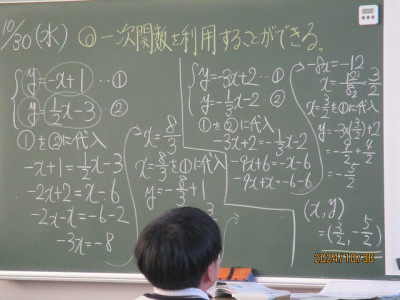 10/30(水) ◎ 一次関数を利用することができる。
y=-x+1 …①
y=1/2x-3 …②
①を②に代入
-x+1=1/2x-3
-2x+2=x-6
-2x-x=-6-2
-3x=-8
x=8/3
x=8/3を①に代入
y=-8/3+1
y=-3x+2 …①
y=-1/3x-2 ②
①を②に代入
-3x+2=-1/3x-2
-9x+6=-x-6
-9x+x=-6-6
-8x=-12
x=12/8 3/2
x=3/2を①に代入
y=-3×(3/2)+2
=-9/2+4/2
=-5/2
(x,y)
=(3/2,-5/2)
2024/10/30